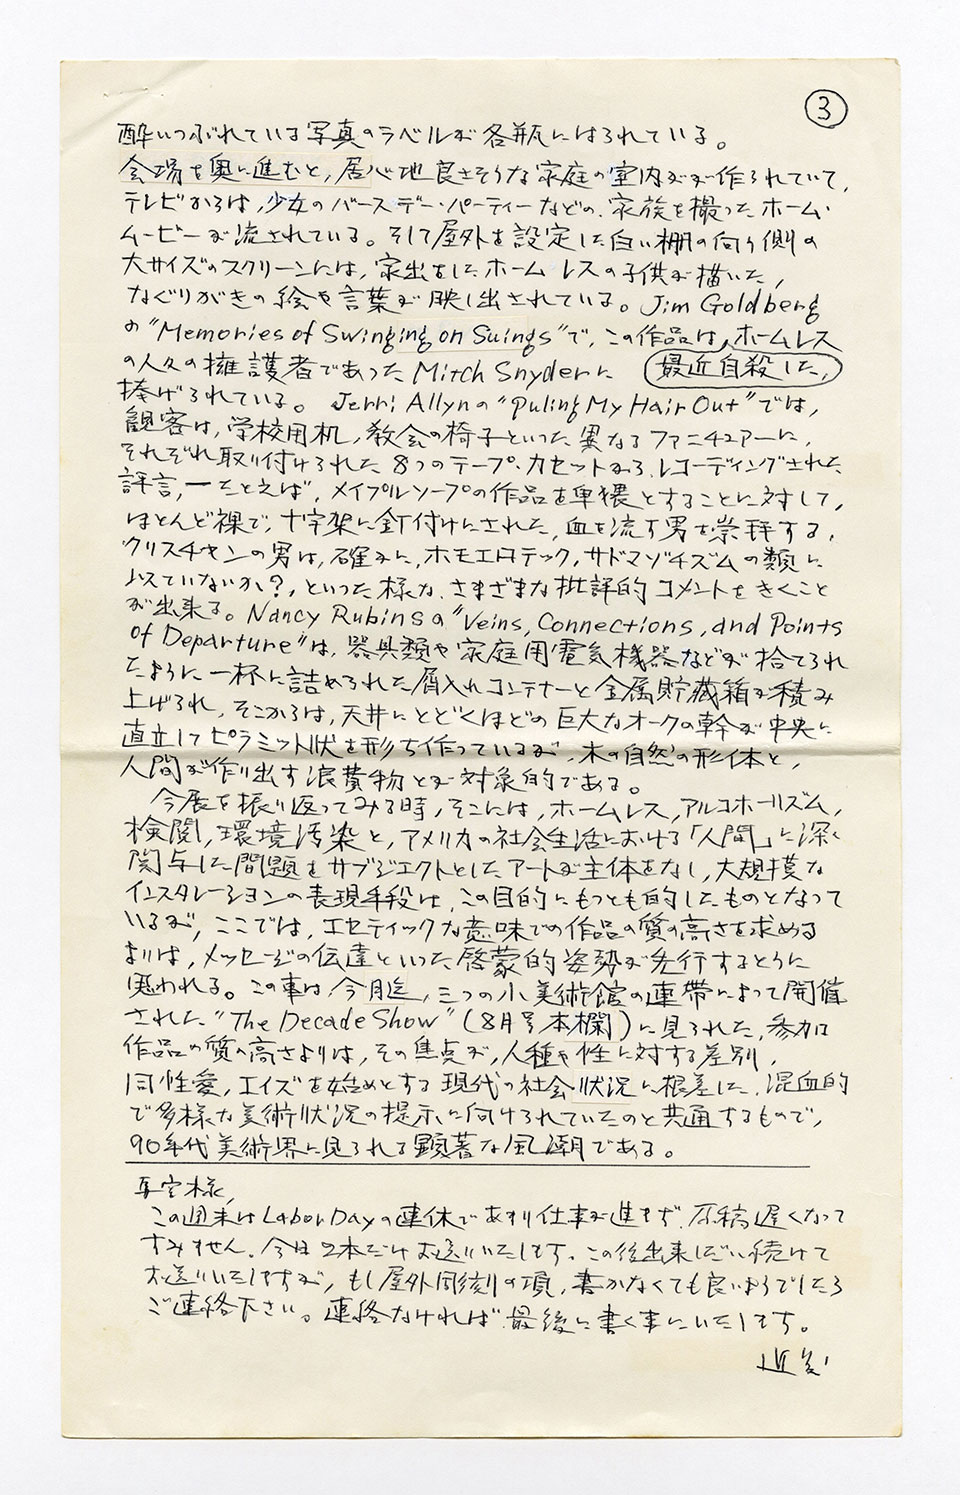 ③
酔いつぶれている写真のラベルが各瓶にはられている。
会場を奥に進むと, 居心地良さそうな家庭の室内が作られていて,
テレビからは, 少女のバースデー・パーティーなどの, 家族を撮ったホーム・
ムービーが流されている。そして屋外を設定した白い棚の向う側の
大サイズのスクリーンには, 家出をしたホームレスの子供が描いた,
なぐりがきの絵や言葉が映し出されている。Jim Goldberg
の"Memories of Swinging on Suings"で, この作品は, ホームレス
の人々の擁護者であった Mitch Snyderに 最近自殺した,
捧げられている。Jerri Allynの"Puling My Hair Out"では,
観客は, 学校用机, 教会の椅子といった異なるファニチュアーに,
それぞれ取り付けられた8つのテープ・カセットから, レコーディングされた
評言, ーたとえば, メイプルソープの作品を卑猥とすることに対して,
ほとんど裸で, 十字架に釘付けにされた, 血を流す男を崇拝する,
クリスチャンの男は, 確かに, ホモエロテック, サドマゾチズムの類に
似ていないか?, といった様な, さまざまな批評的コメントをきくこと
が出来る。Nancy Rubinsの"Veins, Connections, and Points
of Departure"は, 器具類や家庭用電気機器などが捨てられ
たように一杯に詰められた屑入れコンテナーと金属貯蔵箱が積み
上げられ, そこからは, 天井にとどくほどの巨大なオークの幹が中央に
直立してピラミット状を形ち作っているが, 木の自然の形体と,
人間が作り出す浪費物とが対象的である。
今展を振り返ってみる時, そこには, ホームレス, アルコホーリズム,
検閲, 環境汚染と, アメリカの社会生活における「人間」に深く
関与した問題をサブジエクトとしたアートが主体をなし, 大規模な
インスタレーションの表現手段は, この目的にもっとも的したものとなって
いるが, ここでは, エセティックな意味での作品の質の高さを求める
よりは, メッセージの伝達といった啓蒙的姿勢が先行するように
思われる。この事は, 今月迄, 三つの小美術館の連帯によって開催
された"The Decade Show"(8月号本欄)に見られた, 参加
作品の質の高さよりは, その焦点が, 人種や性に対する差別,
同性愛, エイズを始めとする現代の社会状況に根差した, 混血的
で多様な美術状況の提示に向けられていたのと共通するもので,
90年代美術界に見られる顕著な風潮である。
様,
この週末はLabor Dayの連休であまり仕事が進まず, 原稿遅くなって
すみません。今日2本だけお送りいたします。この後出来しだい続けて
お送りいたしますが, もし屋外彫刻の項, 書かなくても良いようでしたら
ご連絡下さい。連絡なければ最後に書く事にいたします。